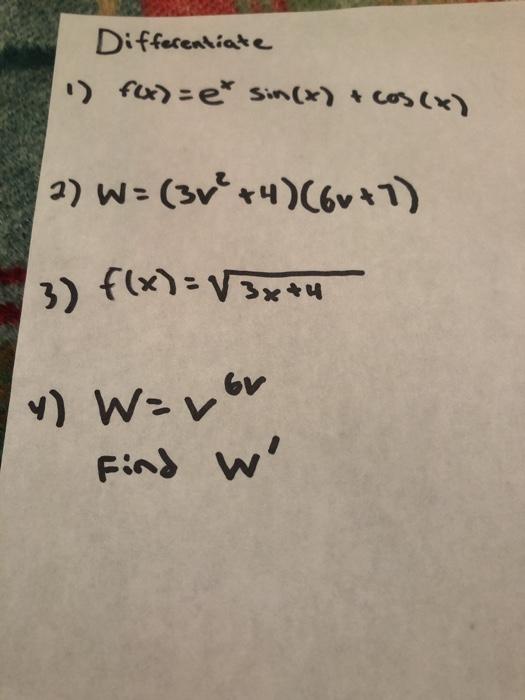 Differentiate
1) f(x) = eˣ sin(x) + cos(x)
2) W = (3v² + 4)(6v + 7)
3) f(x) = √3x+4
4) W = v⁶ᵛ
Find W'